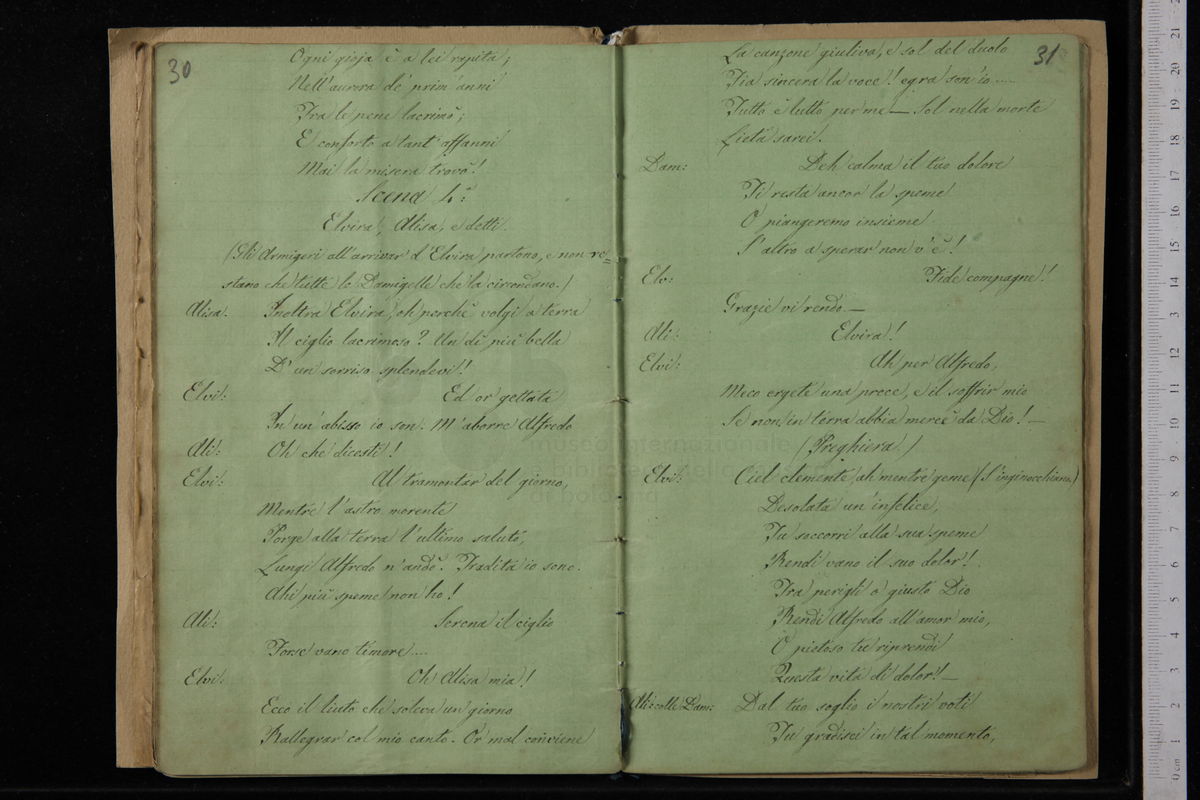 30
Ogni gioja è a lei rapita;
Nell'aurora de' prim'anni
Fra le pene lacrimò;
E conforto a tant'affanni
Mai la misera trovò!
Scena 4ª
Elvira, Alisa, e detti.
(Gli Armigeri all'arrivar d'Elvira partono, e non re=
stano che tutte le Damigelle che la circondano.)
Alisa. Inoltra Elvira, oh perchè volgi a terra
Il ciglio lacrimoso? Un dì più bella
D'un sorriso splendevi!
Elvi: Ed or gettata
In un'abisso io son. M'aborre Alfredo
Ali: Oh che dicesti!
Elvi: Al tramontar del giorno,
Mentre l'astro morente
Porge alla terra l'ultimo saluto,
Lungi Alfredo n'andò. Tradita io sono.
Ahi più speme non ho!
Ali: Serena il ciglio
Forse vano timore....
Elvi: Oh Alisa mia!
Ecco il liuto che soleva un giorno
Rallegrar col mio canto. Or mal conviene
31
La canzone giuliva, e sol del duolo
Fia sincera la voce! egra son'io....
Tutto è lutto per me — Sol nella morte
Lieta sarei!
Dam: Deh calma il tuo dolore
Ti resta ancor la speme
O piangeremo insieme
S'altro a sperar non v'è!
Elv: Fide compagne!
Grazie vi rendo —
Ali: Elvira!
Elvi: Ah per Alfredo,
Meco ergete una prece, e il soffrir mio
Se non, in terra abbia mercè da Dio! —
(Preghiera)
Elvi: Ciel clemente, ah mentre geme (s'inginocchiano)
Desolata un'infelice,
Tu soccorri alla sua speme
Rendi vano il suo dolor!
Fra perigli o giusto Dio
Rendi Alfredo all'amor mio,
O pietoso tu riprendi
Questa vita di dolor! —
Ali: e colle Dam: Dal tuo soglio i nostri voti
Tu gradisci in tal momento,
museo internazionale
e biblioteca della musica
di bologna